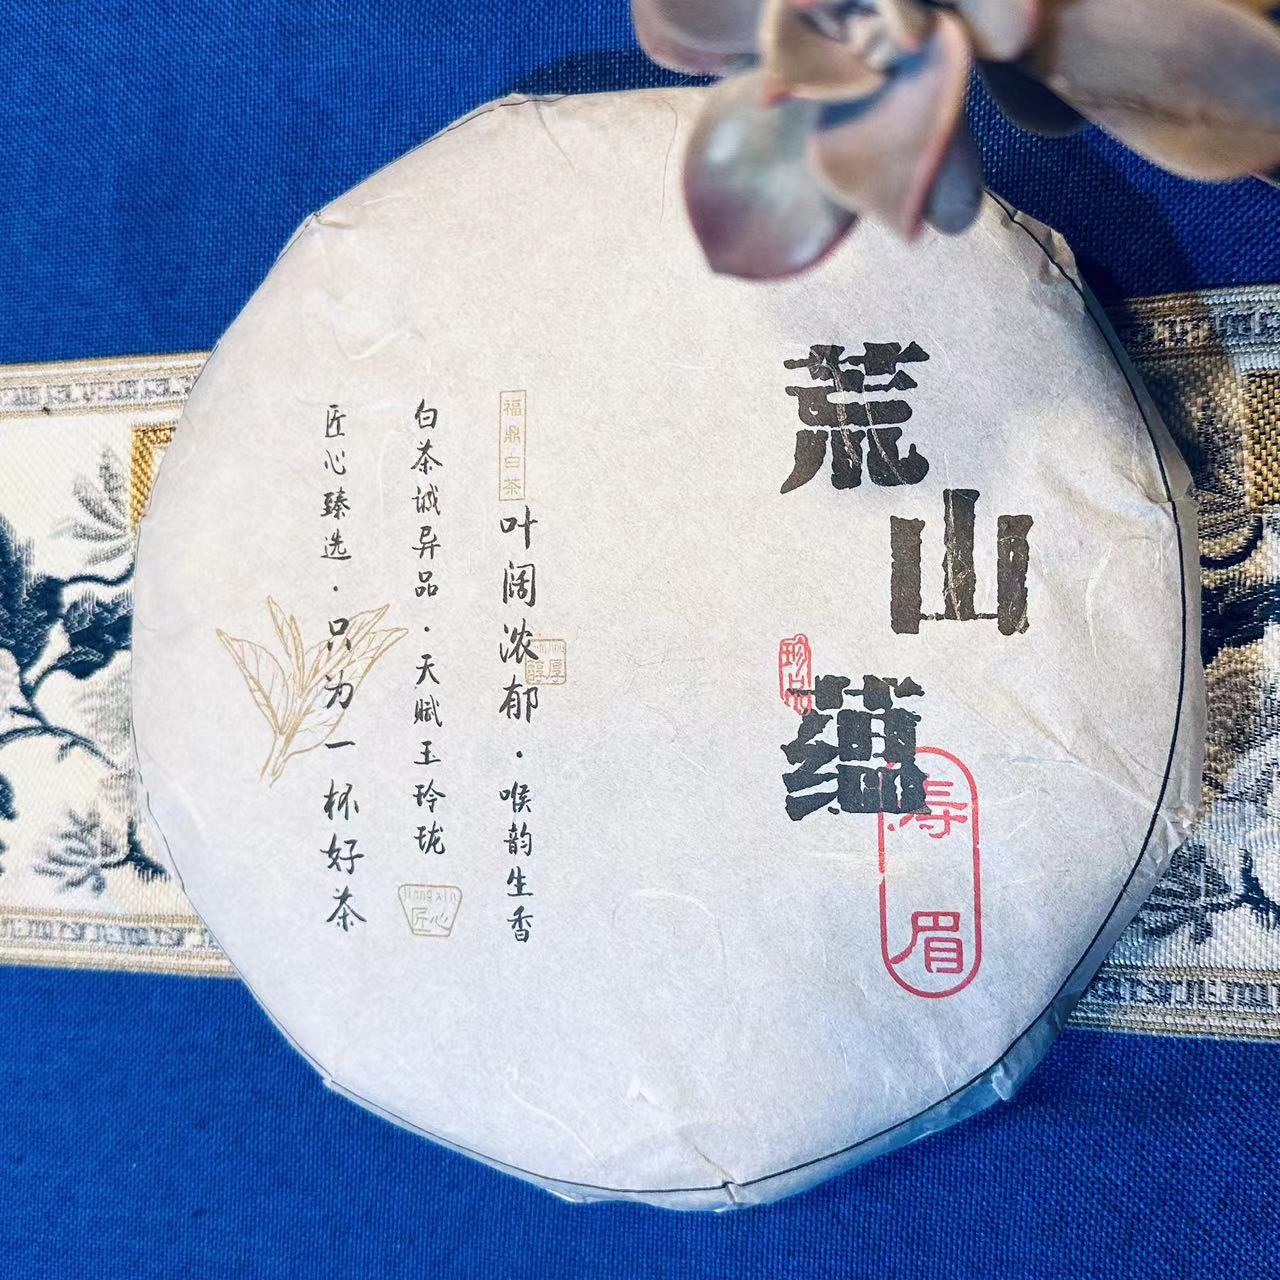 荒山蕴
珍品
寿眉
福鼎白茶
叶阔浓郁·喉韵生香
醇厚
白茶诚异品·天赋玉玲珑
jiang xin
匠心
匠心臻选·只为一杯好茶